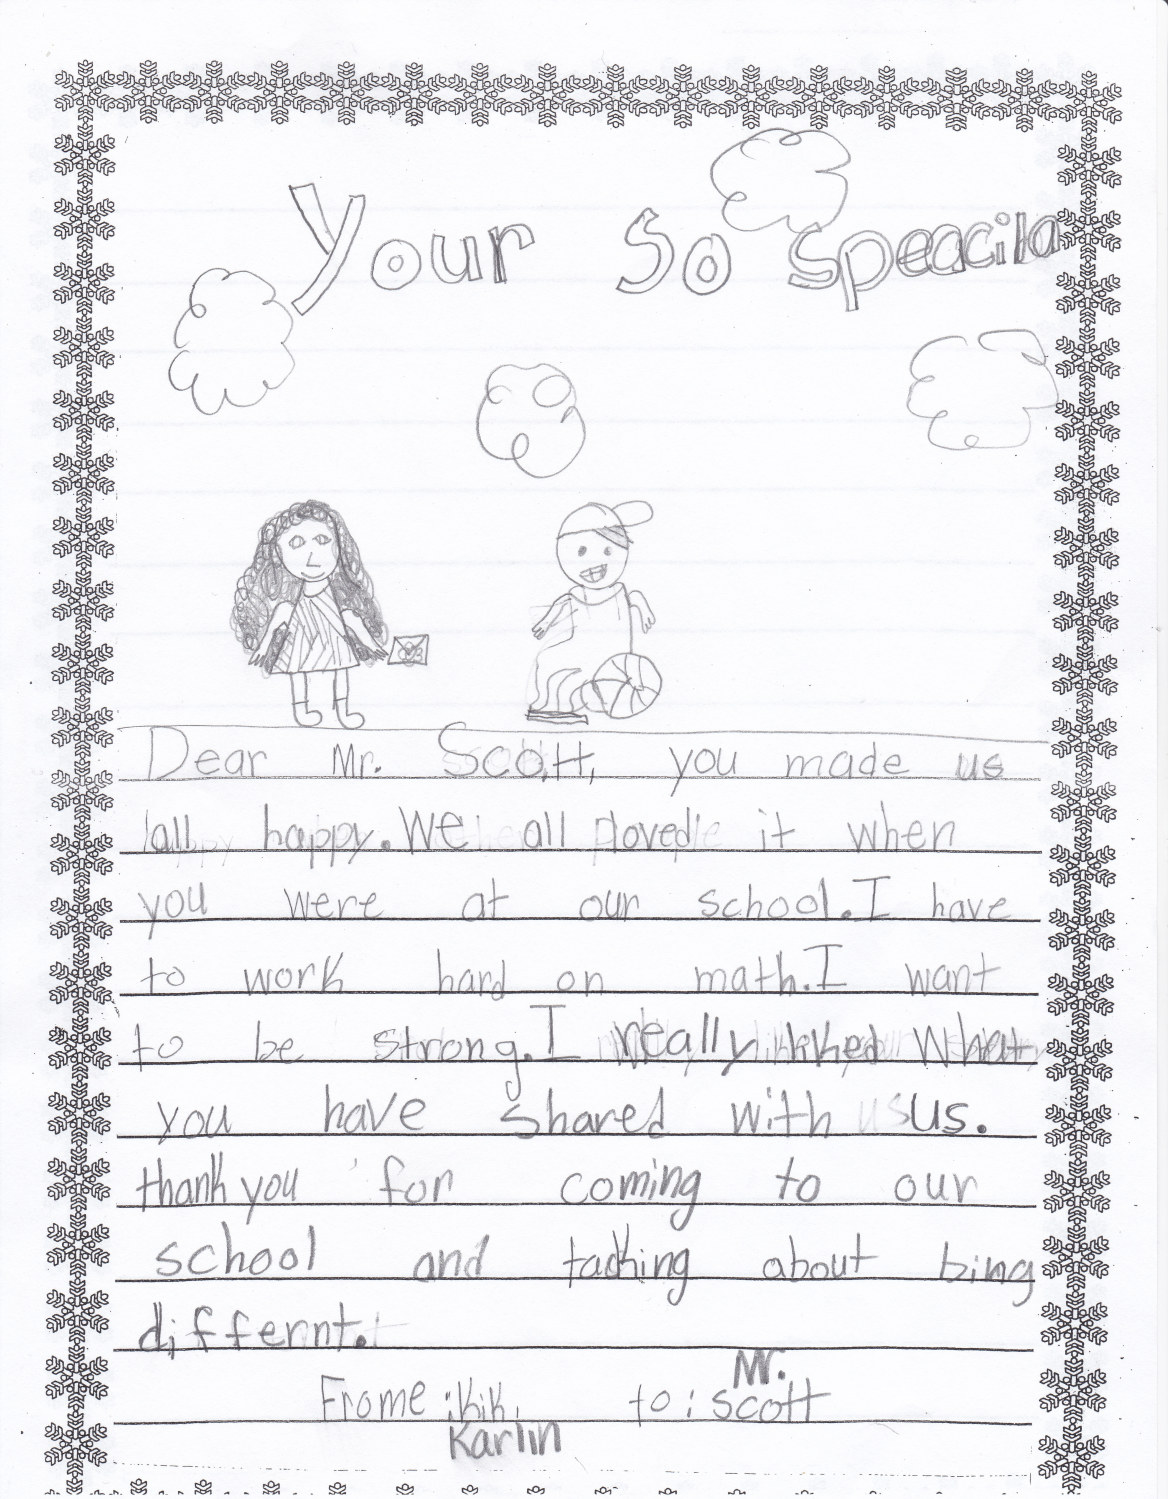 Your So Speacila
Dear Mr. Scott, you made us
all happy. We all loved it when
you were at our school. I have
to work hard on math. I want
to be strong. I really liked what
you have shared with us.
thank you for coming to our
school and taching about bing
differnt.
Mr.
Frome: Kik, to: Scott
Karlin